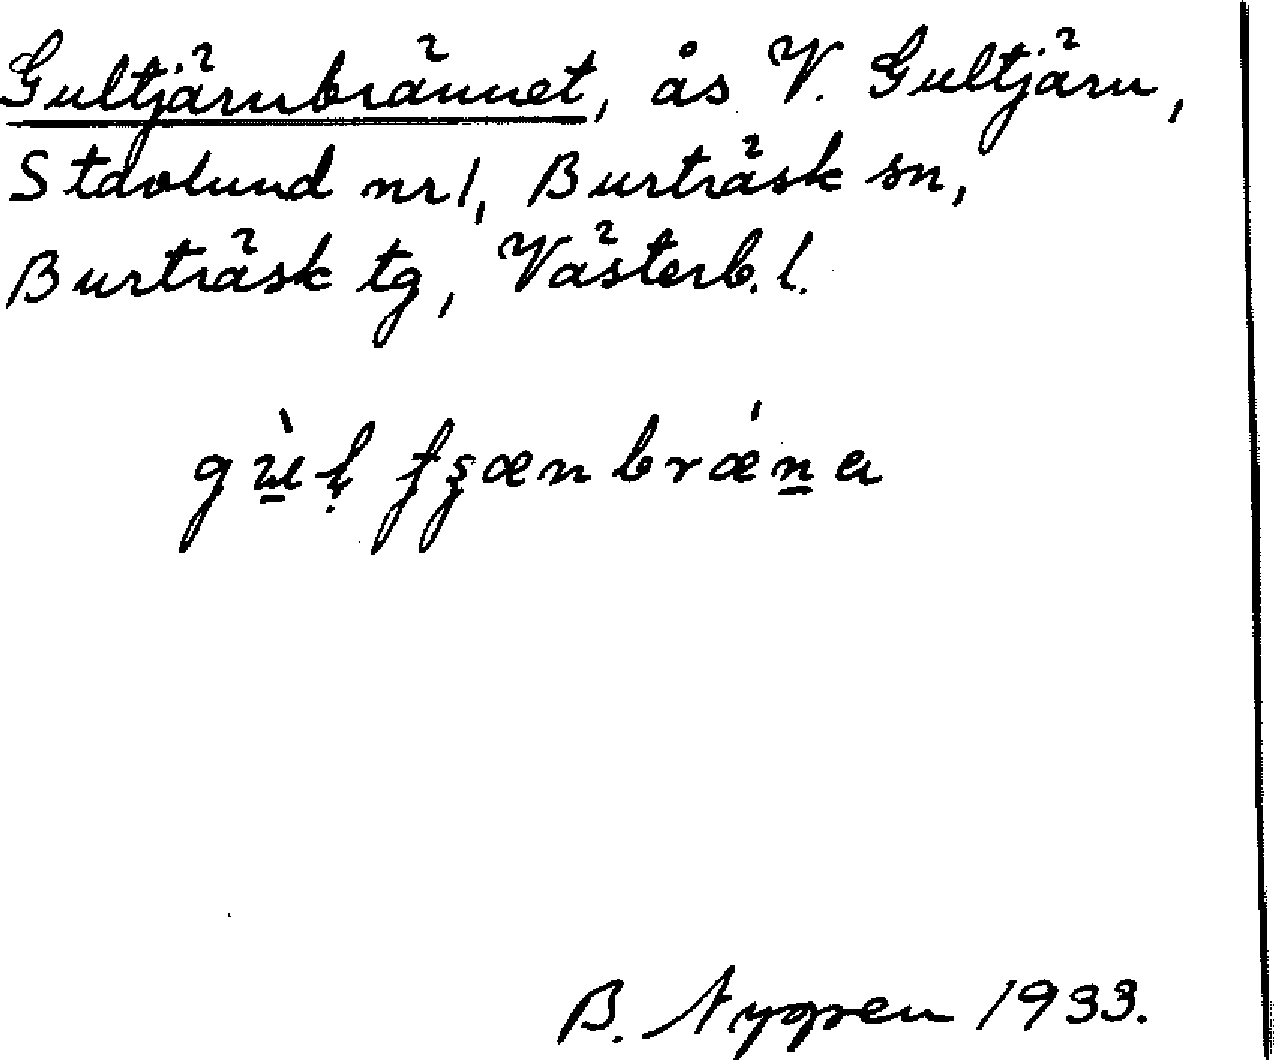 Gultjärnbrännet, ås V. Gultjärn,
Stavlund nr 1, Burträsk sn,
Burträsk tg, Västerb. l.
B. Nygren 1933.